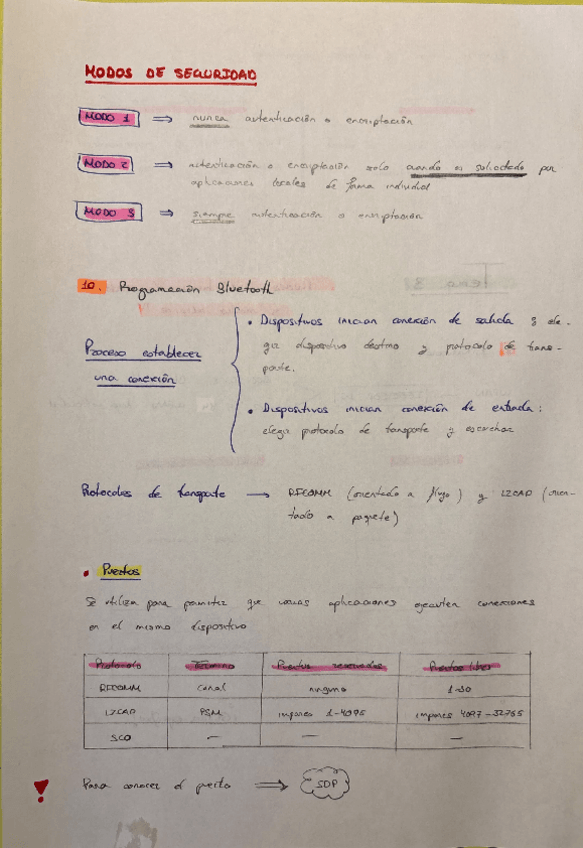 MODOS DE SEGURIDAD
MODO 1 ⇒ nunca autenticación o encriptación
MODO 2 ⇒ autenticación o encriptación solo cuando es solicitado por
aplicaciones locales de forma individual
MODO 3 ⇒ siempre autenticación o encriptación
10. Programación Bluetooth
Proceso establecer
una conexión
• Dispositivos inician conexión de salida : ele-
gir dispositivo destino y protocolo de trans-
porte.
• Dispositivos inician conexión de entrada :
elegir protocolo de transporte y escuchar
Protocolos de transporte → RFCOMM (orientado a flujo) y L2CAP (orien-
tado a paquete)
• Puertos
Se utiliza para permitir que varias aplicaciones ejecuten conexiones
en el mismo dispositivo
Protocolo Término Puertos reservados Puertos libres
RFCOMM canal ninguno 1-30
L2CAP PSM impares 1-4095 impares 4097-32765
SCO — — —
! Para conocer el puerto ⇒ SDP